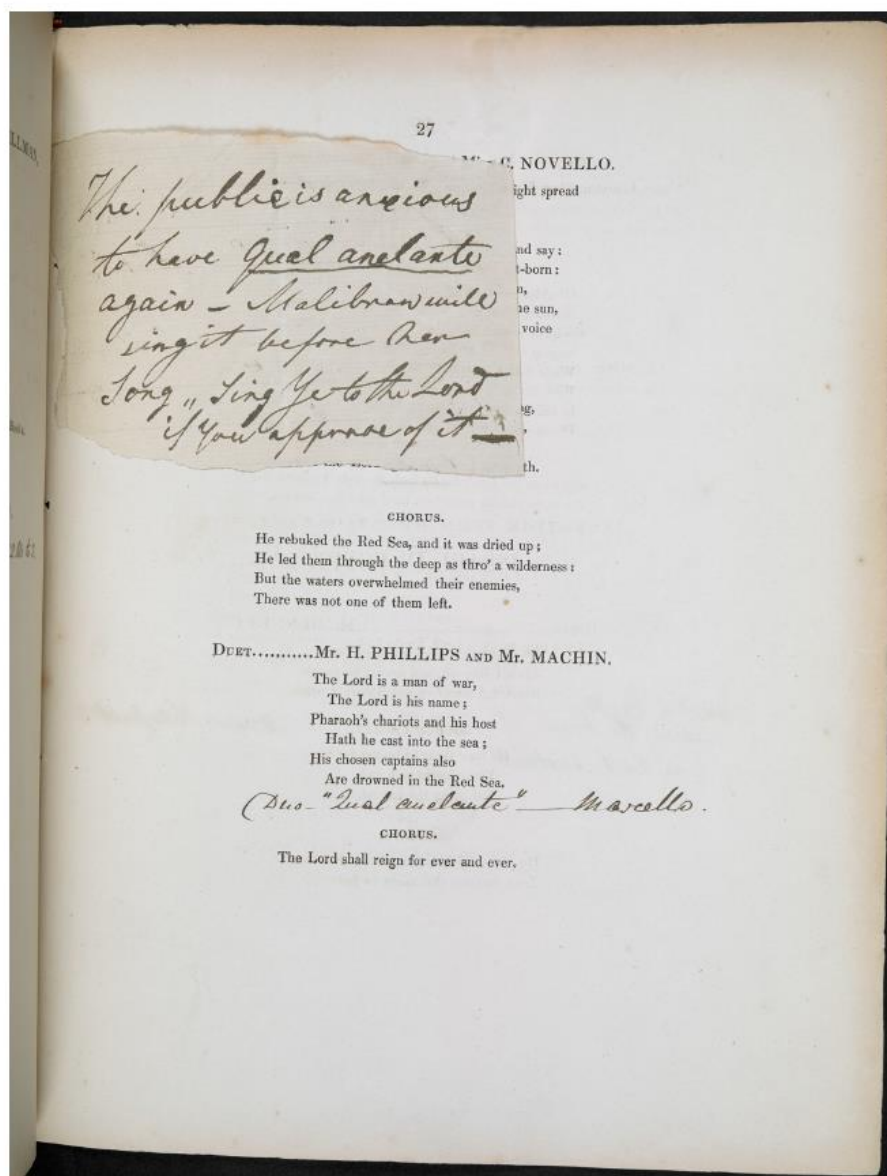 27
C. NOVELLO.
ight spread
nd say:
t-born:
n,
he sun,
voice
The public is anxious
to have Qual anelante
again – Malibran will
sing it before her
Song „ Sing Ye to the Lord
if You approve of it —
g,
th.
CHORUS.
He rebuked the Red Sea, and it was dried up;
He led them through the deep as thro' a wilderness:
But the waters overwhelmed their enemies,
There was not one of them left.
DUET...........Mr. H. PHILLIPS AND Mr. MACHIN.
The Lord is a man of war,
The Lord is his name;
Pharaoh's chariots and his host
Hath he cast into the sea;
His chosen captains also
Are drowned in the Red Sea.
(Duo – "Qual anelante" — Marcello.
CHORUS.
The Lord shall reign for ever and ever.